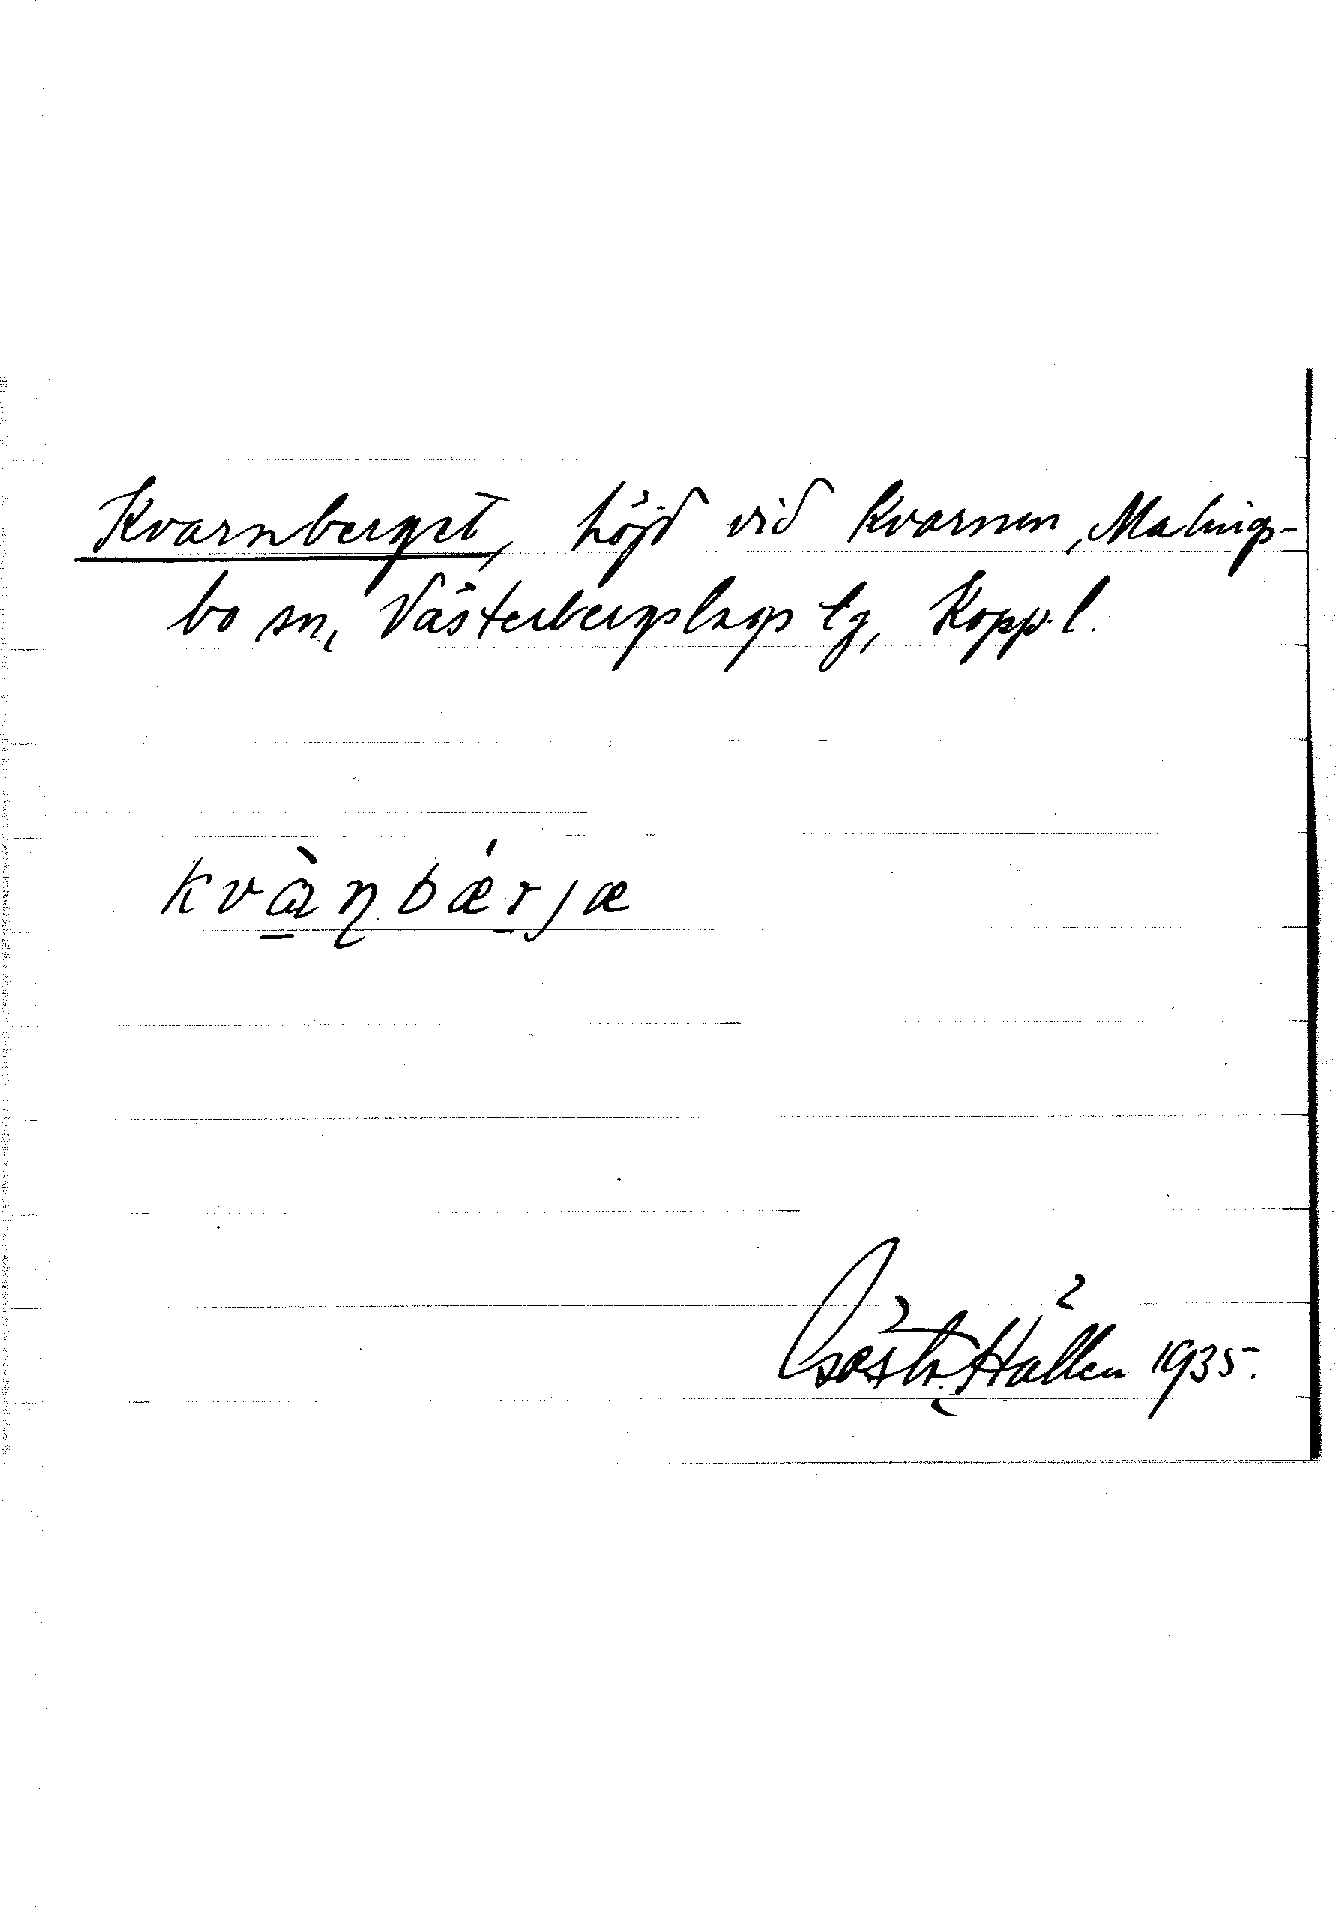 Kvarnberget, höjd vid kvarnen, Malings-
bo sn, Västerbergslags tg, Kopp. l.
kvàɳbǽrjæ
Hallen 1935.